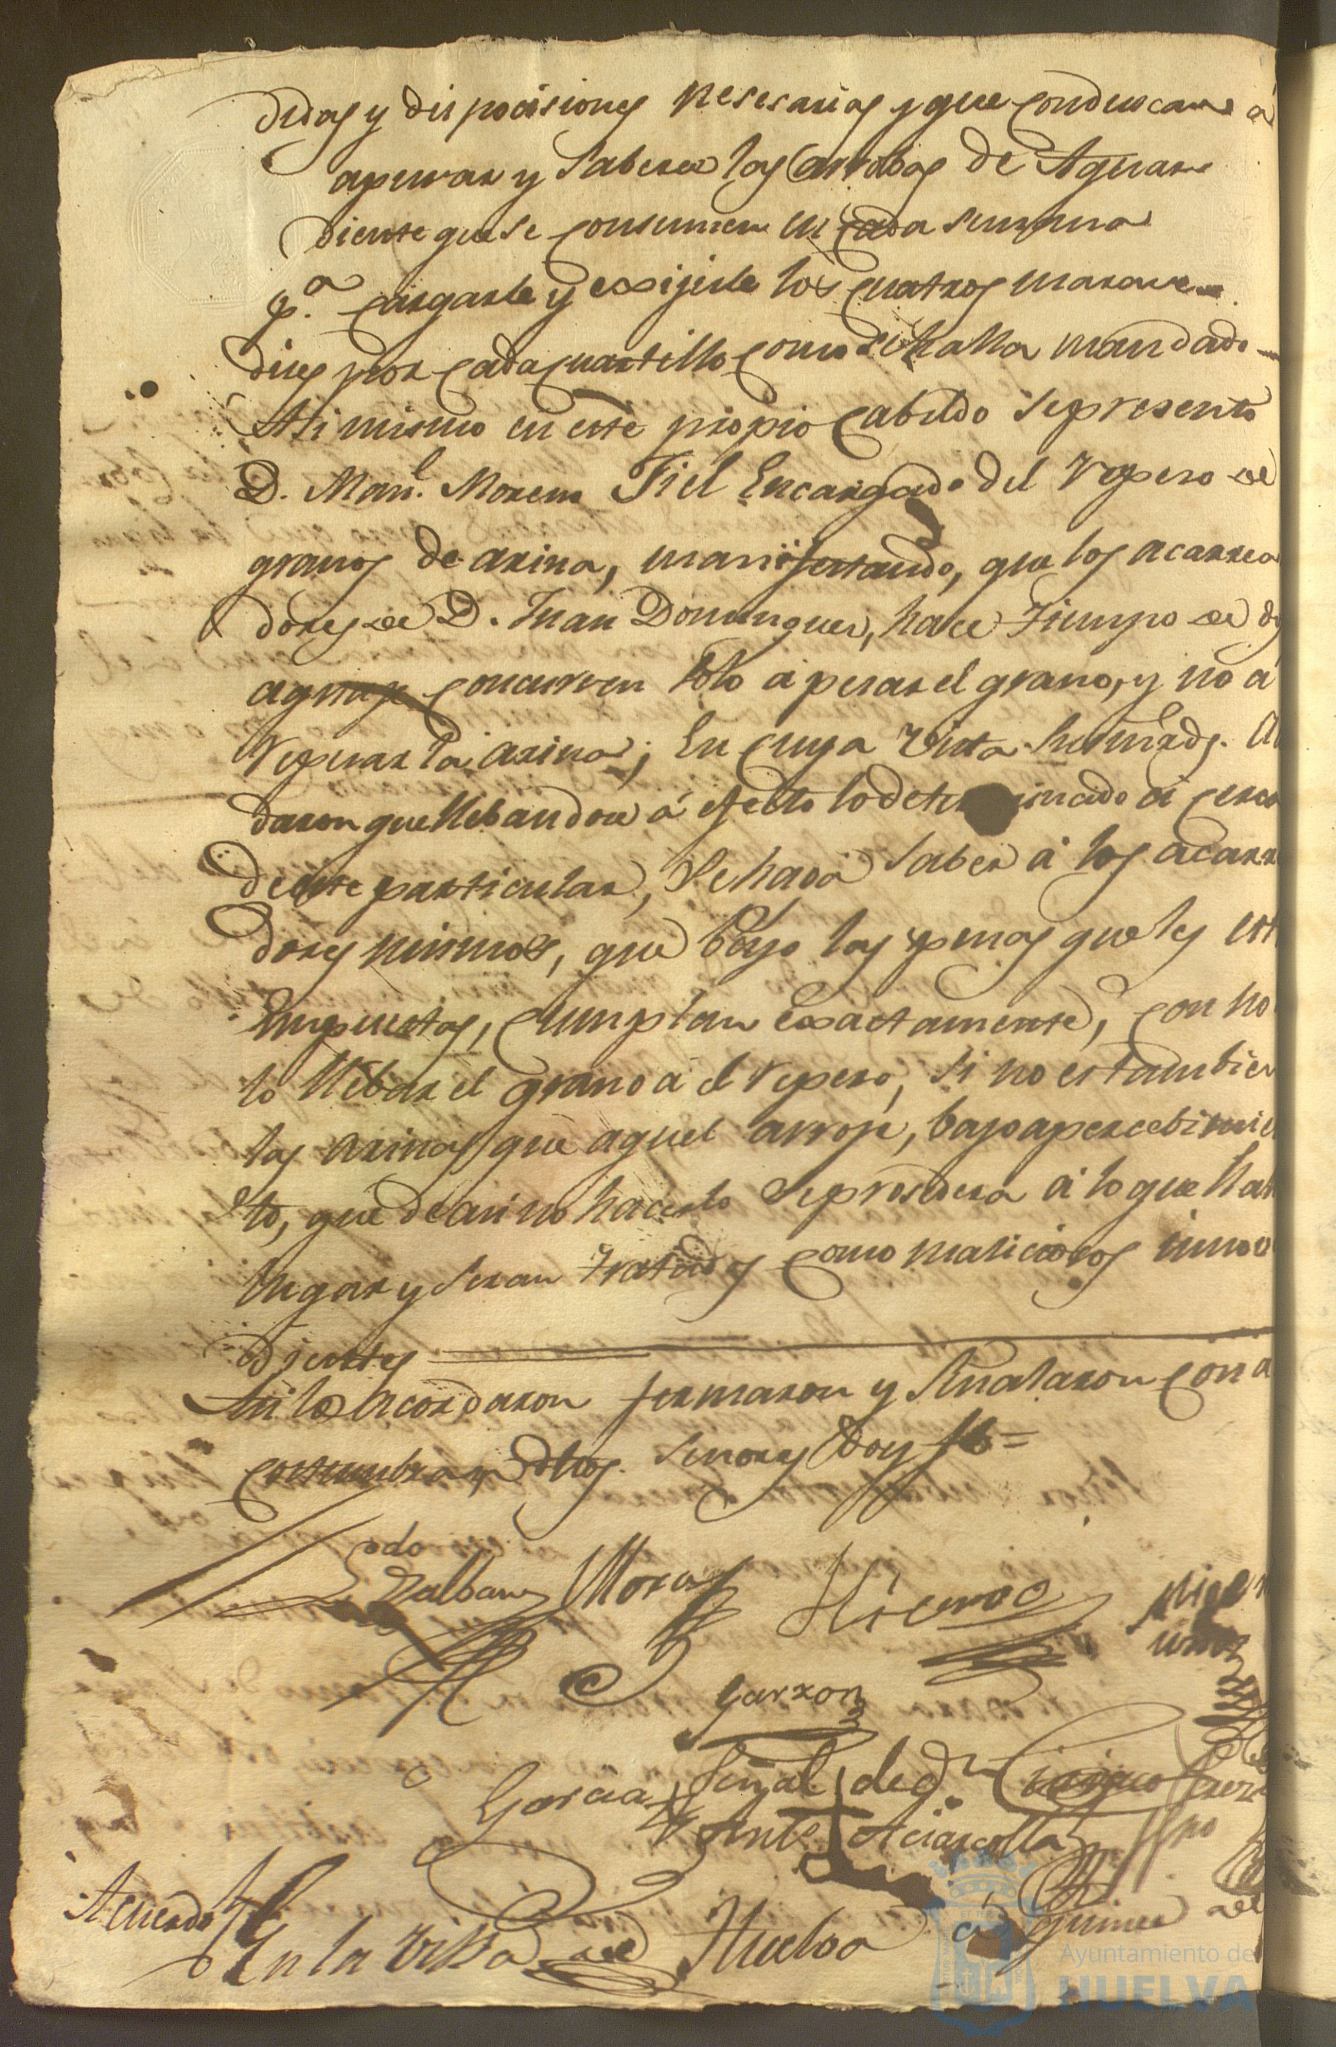 didas y disposisiones nesesarias y que conduscan a
apurar y Saberse las arrobas de Aguar
diente que se consumen en cada semana
p.a cargarle y exijirle los quatros marave
dies por cada quartillo como se halla mandado
Asi mismo en este propio Cabildo se presento
D. Man.l Moreno Fiel Encargado del Repeso de
granos de arina, manifestando, que los acarrea
dores de D. Juan Dominguez, hace Tiempo de
concurren solo á pesar el grano, y no á
repesar la arina; En cuya Vista
daron que llebandose á efecto lo determinado a serca
de este particular, Se hará saber á los acarr
dores mismos, que bajo las penas que les est
Impuestas, cumplan exactamente, con no
lo llebar el grano á el repeso, si no es tambien
las arinas que aquel arroje, bajo apercebimie
to, que de asi no hacerlo se prosedera á lo que halla
lugar y seran tratados como maliciosos inove
dientes
Asi lo acordaron firmaron y señalaron con a
costumbran dhos. Senores Doy fe=
Mora
Garzon
Garcia Señal de D.n Ciriaco
Anto
Acuerdo En la Villa de Huelva á quinse de
Ayuntamiento de
HUELVA